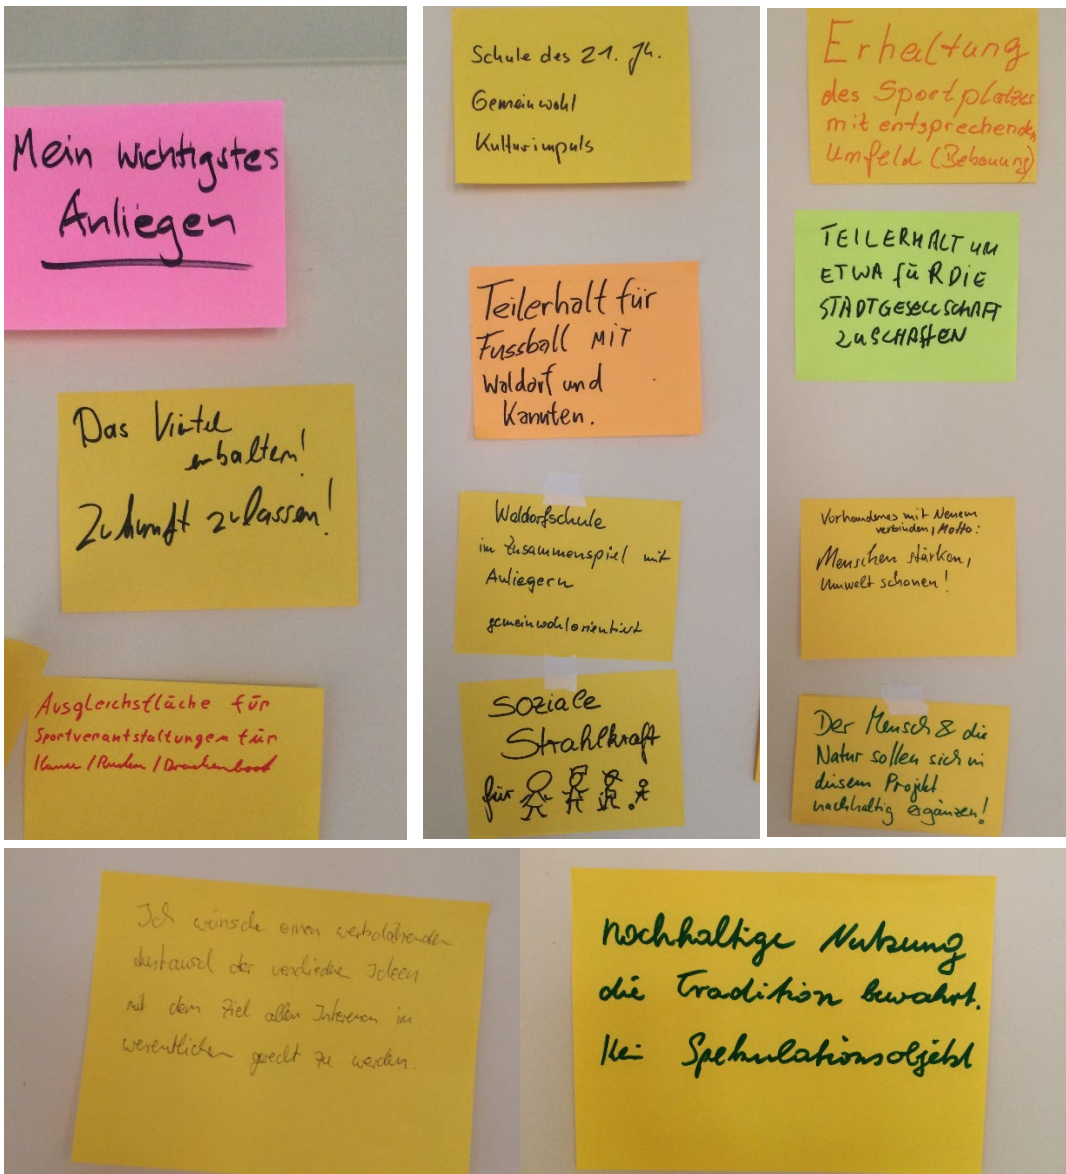 Mein wichtigstes
Anliegen
Das Viertel
erhalten!
Zukunft zulassen!
Ausgleichsfläche für
Sportverantstaltungen für
Kanu / Rudern / Drachenboot
Schule des 21. Jh.
Gemeinwohl
Kulturimpuls
Teilerhalt für
Fussball MiT
Waldorf und
Kanuten.
Waldorfschule
im Zusammenspiel mit
Anliegern
gemeinwohlorientiert
Soziale
Strahlkraft
für
Erhaltung
des Sportplatzes
mit entsprechenden
Umfeld (Bebauung)
TEILERHALT UM
ETWA füR DIE
STADTGESELLSCHAFT
ZU SCHAFFEN
Vorhandenes mit Neuem
verbinden, Motto:
Menschen stärken,
Umwelt schonen!
Der Mensch & die
Natur sollen sich in
diesem Projekt
nachhaltig ergänzen!
Ich wünsche einen wertschätzenden
Austausch der verschiedenen Ideen
mit dem Ziel allen Interessen im
wesentlichen gerecht zu werden.
nachhaltige Nutzung
die Tradition bewahrt.
Kein Spekulationsobjekt